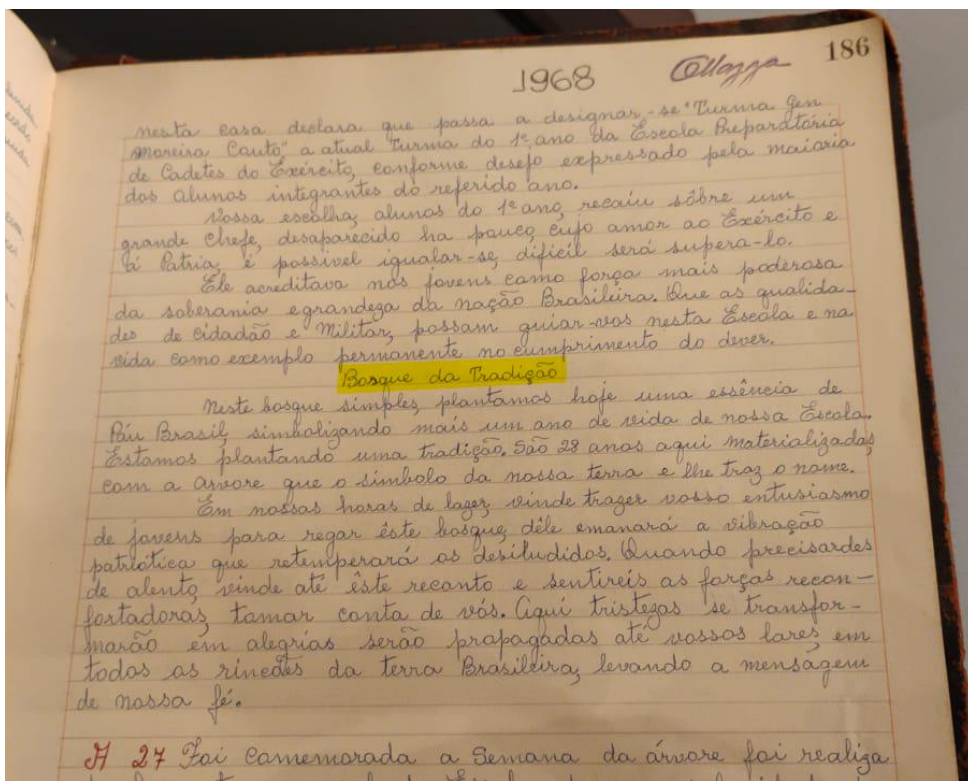 186
1968
nesta casa, declara que passa a designar-se "Turma Gen
Moreira Couto" a atual Turma do 1º ano da Escola Preparatória
de Cadetes do Exército, conforme desejo expressado pela maioria
dos alunos integrantes do referido ano.
Vossa escolha, alunos do 1º ano, recaiu sôbre um
grande Chefe, desaparecido ha pouco, cujo amor ao Exército e
à Patria, é possivel igualar-se, dificil será supera-lo.
Ele acreditava nos jovens como força mais poderosa
da soberania e grandeza da nação Brasileira. Que as qualida-
des de cidadão e Militar, possam guiar-vos nesta Escola e na
vida como exemplo permanente no cumprimento do dever.
Bosque da Tradição
Neste bosque simples, plantamos hoje uma essência de
Páu Brasil, simbolizando mais um ano de vida de nossa Escola.
Estamos plantando uma tradição. São 28 anos aqui materializadas,
com a arvore que o simbolo da nossa terra e lhe traz o nome.
Em nossas horas de lazer, vinde trazer vosso entusiasmo
de jovens para regar êste bosque, dêle emanará a vibração
patriótica que retemperará os desiludidos. Quando precisardes
de alento, vinde até êste recanto e sentireis as forças recon-
fortadoras, tomar conta de vós. Aqui tristezas se transfor-
marão em alegrias serão propagadas até vossos lares, em
todos os rincões da terra Brasileira, levando a mensagem
de nossa fé.
A 27 Foi Comemorada a Semana da árvore foi realiza